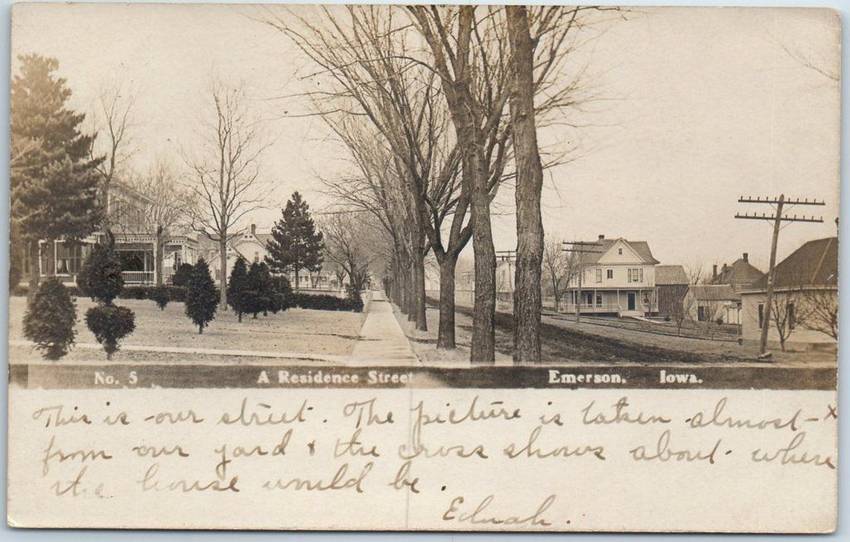 No. 5 A Residence Street Emerson, Iowa.
This is our street. The picture is taken almost x
from our yard & the cross shows about where
the house would be.
Ednah.